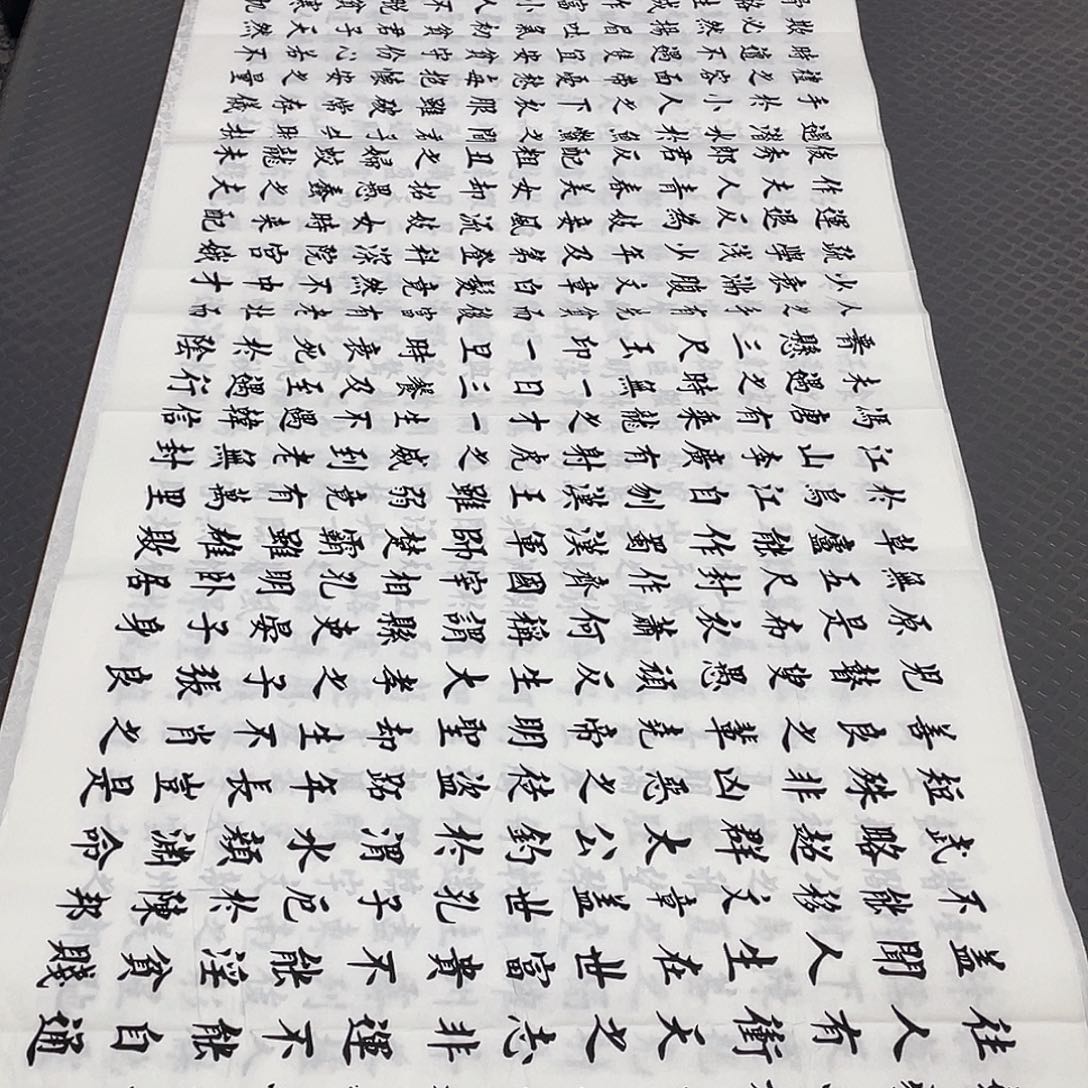 往人有衝天之志非運不能自通
蓋聞人生在世富貴不能淫貧賤
不能移文章蓋世孔子厄於陳邦
武略超群太公釣於渭水顏淵命
短殊非凶惡之徒盜跖年長豈是
善良之輩堯帝明聖却生不肖之
兒瞽叟愚頑反生大孝之子張良
原是布衣蕭何稱謂縣吏晏子身
無五尺封作齊國宰相孔明臥居
草廬能作蜀漢軍師楚霸雖雄敗
於烏江自刎漢王雖弱竟有萬里
江山李廣有射虎之威到老無封
馮唐有乘龍之才一生不遇韓信
未遇之時無一日三餐及至遇行
齊懸三尺玉印一旦時衰死於陰
人之手有先貧而後富有老壯而
少衰滿腹文章白髮竟然不中才
疏學淺少年及第登科深院宮娥
運退反為妓妾風流妓女時來配
作夫人青春美女却招愚蠢之夫
俊秀郎君反配粗丑之婦蛟龍未
遇潛水於魚鱉之間君子失時拱
手於小人之下衣服雖破常存儀
禮之容面帶憂愁每抱懷安之量
時遭不遇只宜安貧守份心若不
欺必然揚眉吐氣初貧君子天然